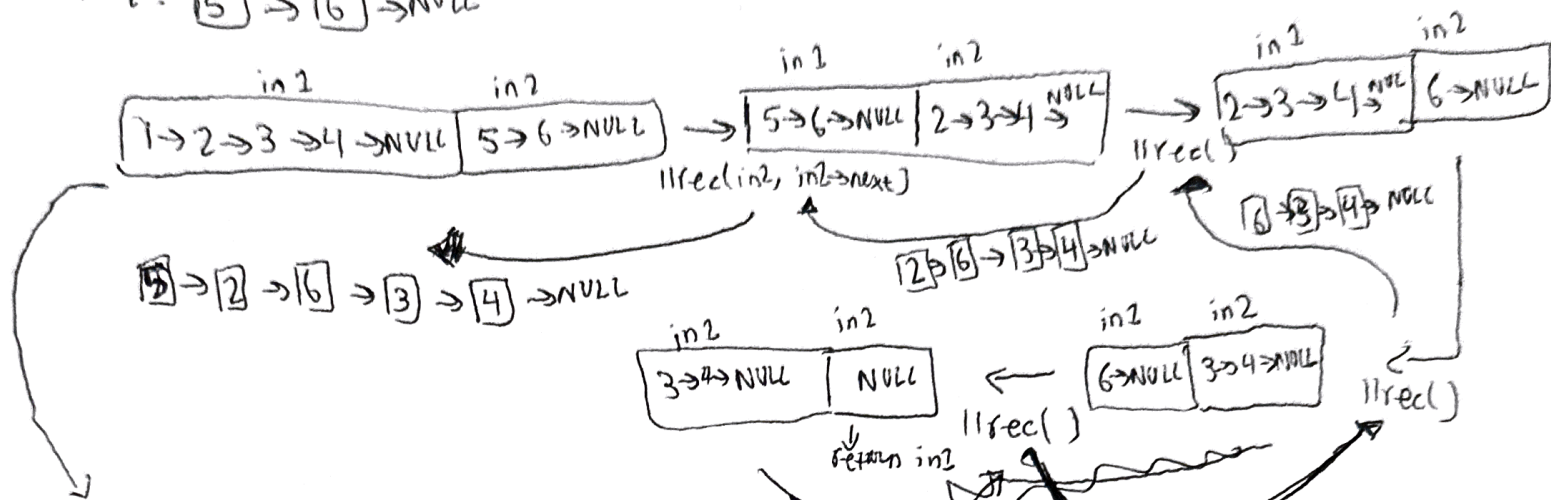 5 → 6 → NULL
in 1 in 2
1 → 2 → 3 → 4 → NULL 5 → 6 → NULL
→
in 1 in 2
5 → 6 → NULL 2 → 3 → 4 → NULL
→
in 1 in 2
2 → 3 → 4 → NUL 6 → NULL
llrec(in2, in2→next)
llrec()
6 → 3 → 4 → NULL
2 → 6 → 3 → 4 → NULL
5 → 2 → 6 → 3 → 4 → NULL
in 2 in 2
3 → 4 → NULL NULL
←
in 1 in 2
6 → NULL 3 → 4 → NULL
llrec()
llrec()
return in1